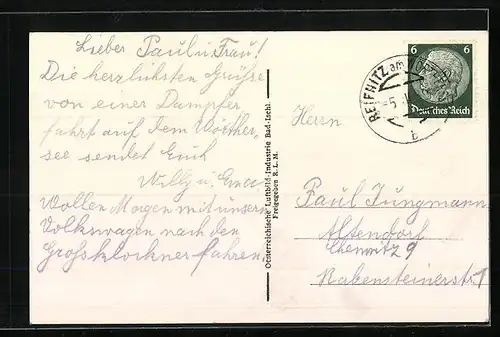 Lieber Paul u. Frau!
Die herzlichsten Grüße
von einer Dampfer
fahrt auf dem Wörther,
see sendet Euch
Willy u. Erna
Wollen Morgen mit unsern
Volkswagen nach den
Großklockner fahren.
Oesterreichische Luftbild-Industrie Bad-Ischl.
Freigegeben R. L. M.
REIFNITZ am
5.
b
6 6
Deutsches Reich
Herrn
Paul Jungmann
Altendorf
Chemnitz 9
Rabensteinerstr. 1